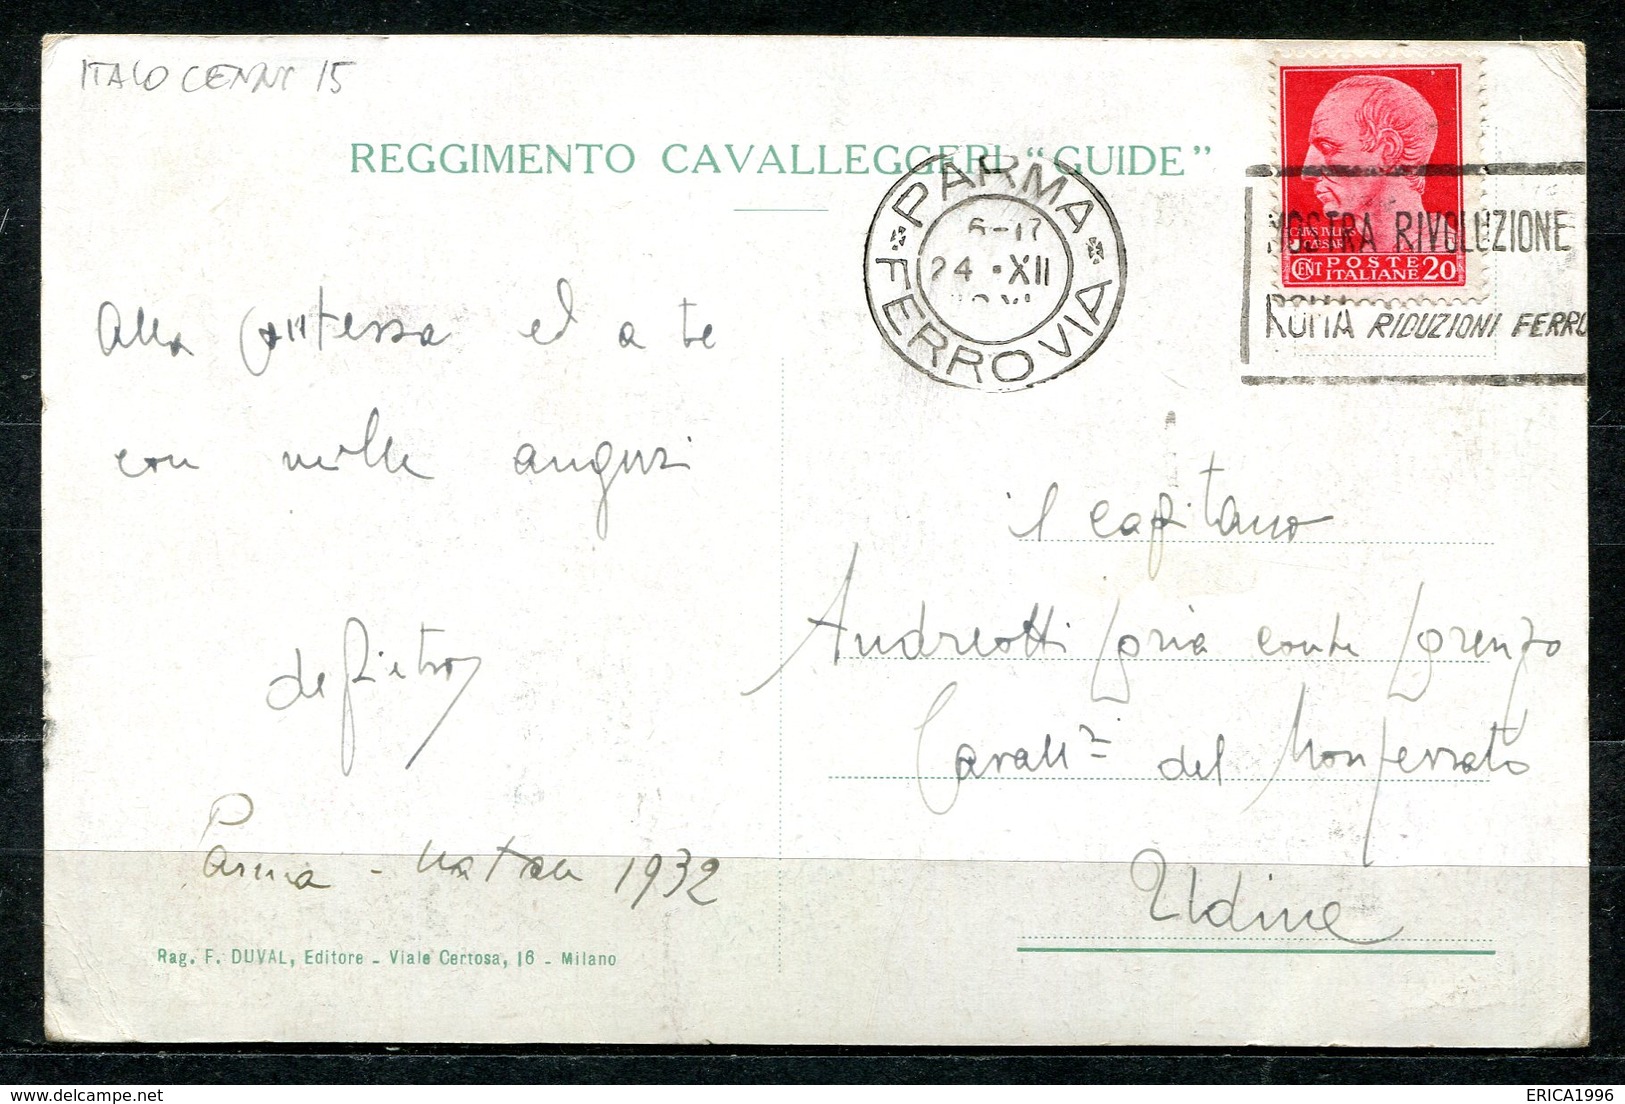 ITALO CENNI 15
REGGIMENTO CAVALLEGGERI "GUIDE"
PARMA
FERROVIA
6-17
24 · XII
MOSTRA RIVOLUZIONE
ROMA RIDUZIONI FERRO
CAIVS IVLIVS
CAESAR
CENT POSTE
ITALIANE 20
Alla contessa ed a te
con mille auguri
de Pietro
Parma - Natale 1932
il capitano
Andreotti Loria conte Lorenzo
Cavall.ri del Monferrato
Udine
Rag. F. DUVAL, Editore - Viale Certosa, 16 - Milano
ERICA1996